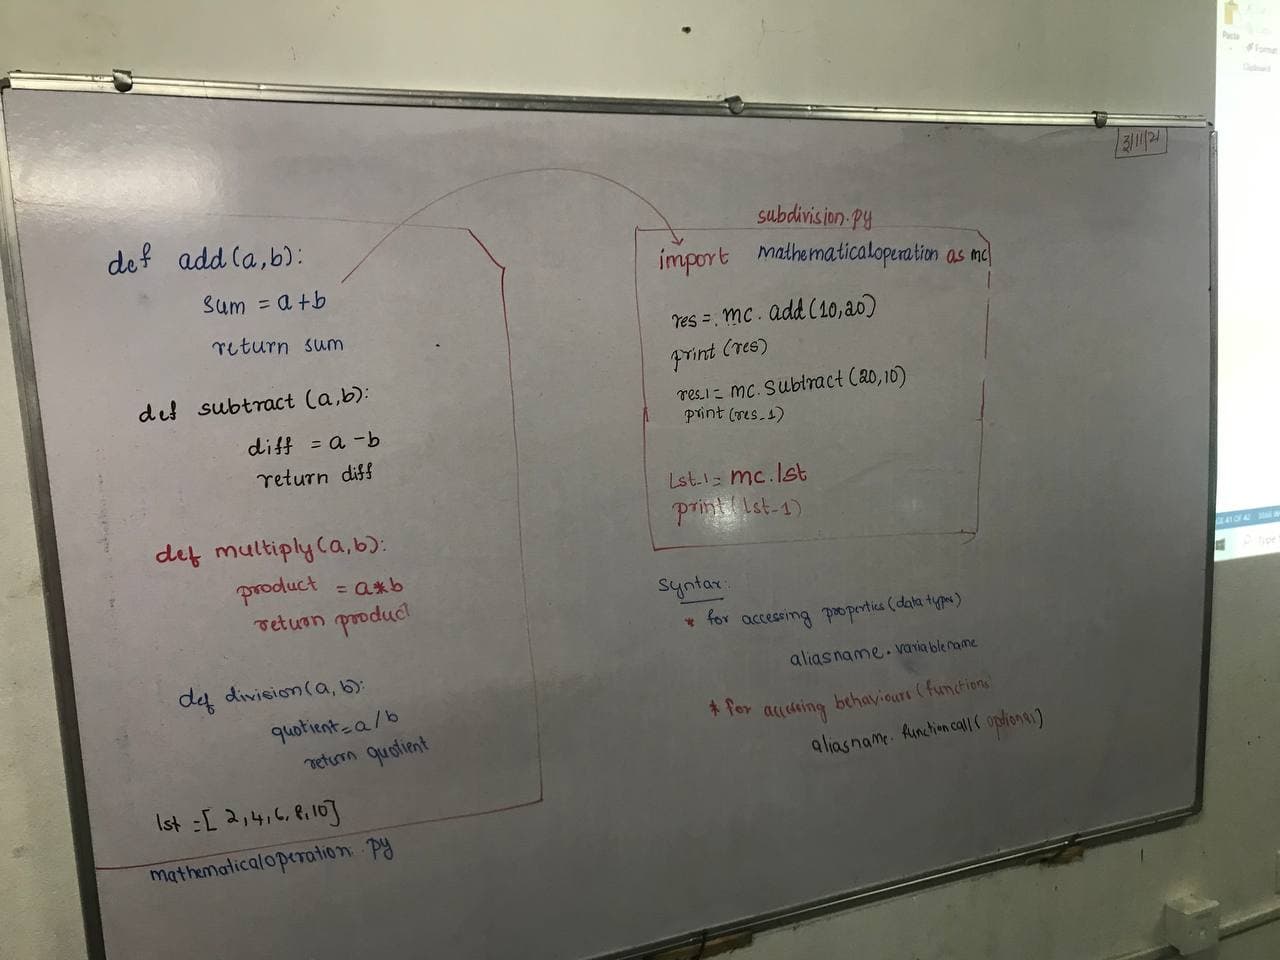 3/11/21
def add(a,b):
sum = a+b
return sum
def subtract (a,b):
diff = a-b
return diff
def multiply(a,b):
product = a*b
return product
def division(a,b):
quotient=a/b
return quotient
lst =[ 2,4,6,8,10]
mathematicaloperation.py
subdivision.py
import mathematicaloperation as mc
res= mc. add(10,20)
print (res)
res_1= mc. subtract (20,10)
print (res_1)
Lst_1= mc.lst
print( lst_1)
Syntax:
* for accessing properties (data types)
aliasname.variablename
* for accessing behaviours (functions
aliasname.functioncall( optional)
Paste
Format
Clipboard
41 OF 42
Type